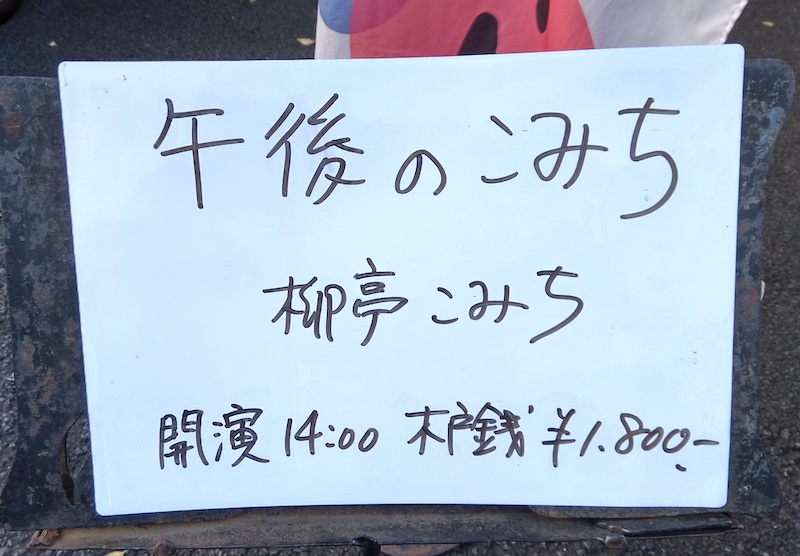 午後のこみち
柳亭こみち
開演 14:00 木戸銭 ¥1.800.-